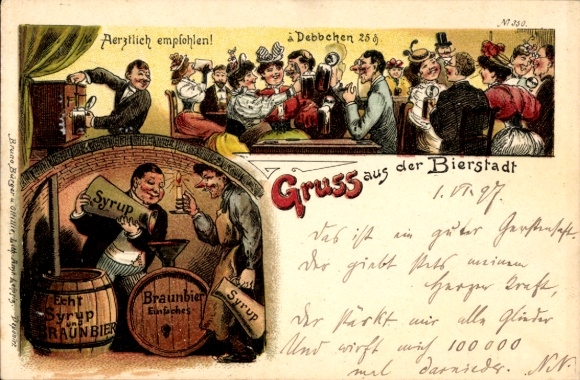 № 350.
Aerztlich empfohlen!
à Debbchen 25 ₰
Gruss aus der Bierstadt
1. VI. 97.
Das ist ein guter Gerstensaft.
Der giebt stets meinem
Herzen Kraft,
Der stärkt mir alle Glieder
Und wirft mich 100000
mal darnieder. N.N.
Syrup
Syrup
Echt
Syrup
und
BRAUNBIER
Braunbier
Einfaches
Bruno Bürger & Ottillie, Lith. Anst. Leipzig